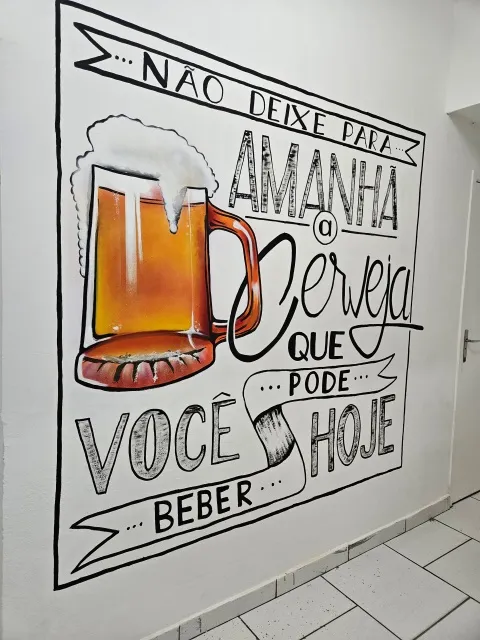 NÃO DEIXE PARA
AMANHÃ
a
Cerveja
QUE
PODE
VOCÊ HOJE
BEBER